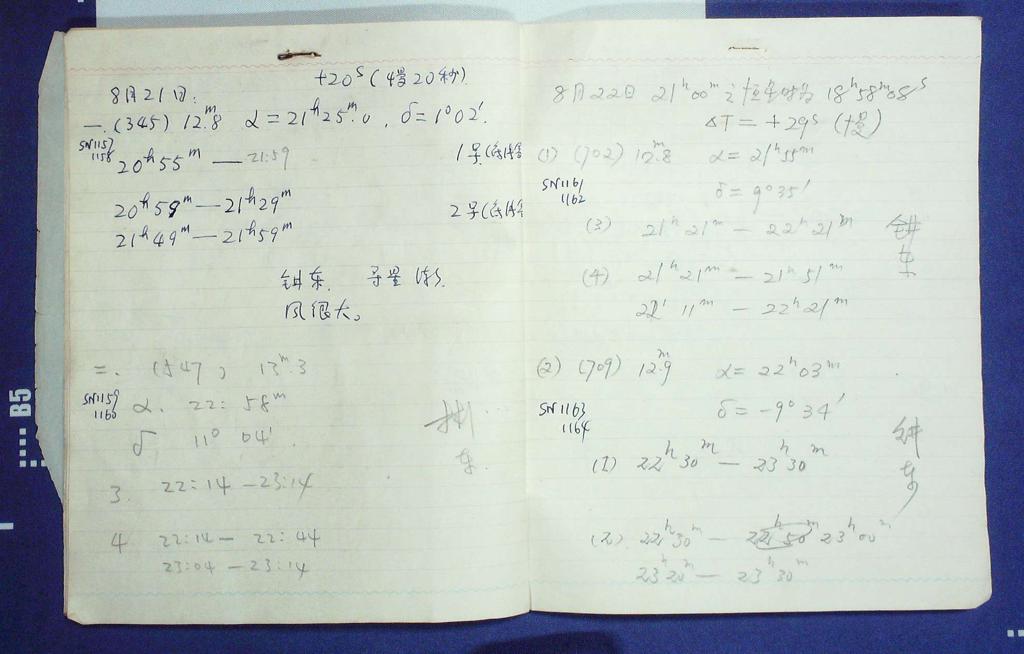 +20ˢ (慢20秒)
8月21日:
一. (345) 12ᵐ.8 α=21ʰ25ᵐ.0, δ=1°02′.
SN1157
1158
20ʰ55ᵐ — 21:59
1号(
20ʰ59ᵐ — 21ʰ29ᵐ
2号(
21ʰ49ᵐ — 21ʰ59ᵐ
钳东. 寻星
风很大。
二. (547) 13ᵐ.3
SN1159
1160
α. 22: 58ᵐ
δ 11° 04′.
东.
3. 22:14 — 23:14
4 22:14 — 22:44
23:04 — 23:14
8月22日 21ʰ00ᵐ之恒星时为 18ʰ58ᵐ08ˢ
ΔT = +29ˢ (慢)
(1) (702) 12ᵐ.8 α= 21ʰ55ᵐ
SN1161
1162
δ= 9°35′
(3) 21ʰ21ᵐ — 22ʰ21ᵐ
(4) 21ʰ21ᵐ — 21ʰ51ᵐ
22ʰ11ᵐ — 22ʰ21ᵐ
东
(2) (709) 12ᵐ.9 α= 22ʰ03ᵐ
SN1163
1164
δ= -9°34′
(1) 22ʰ30ᵐ — 23ʰ30ᵐ
东
(2) 22ʰ30ᵐ — 22ʰ50ᵐ 23ʰ00ᵐ
23ʰ20ᵐ — 23ʰ30ᵐ
B5